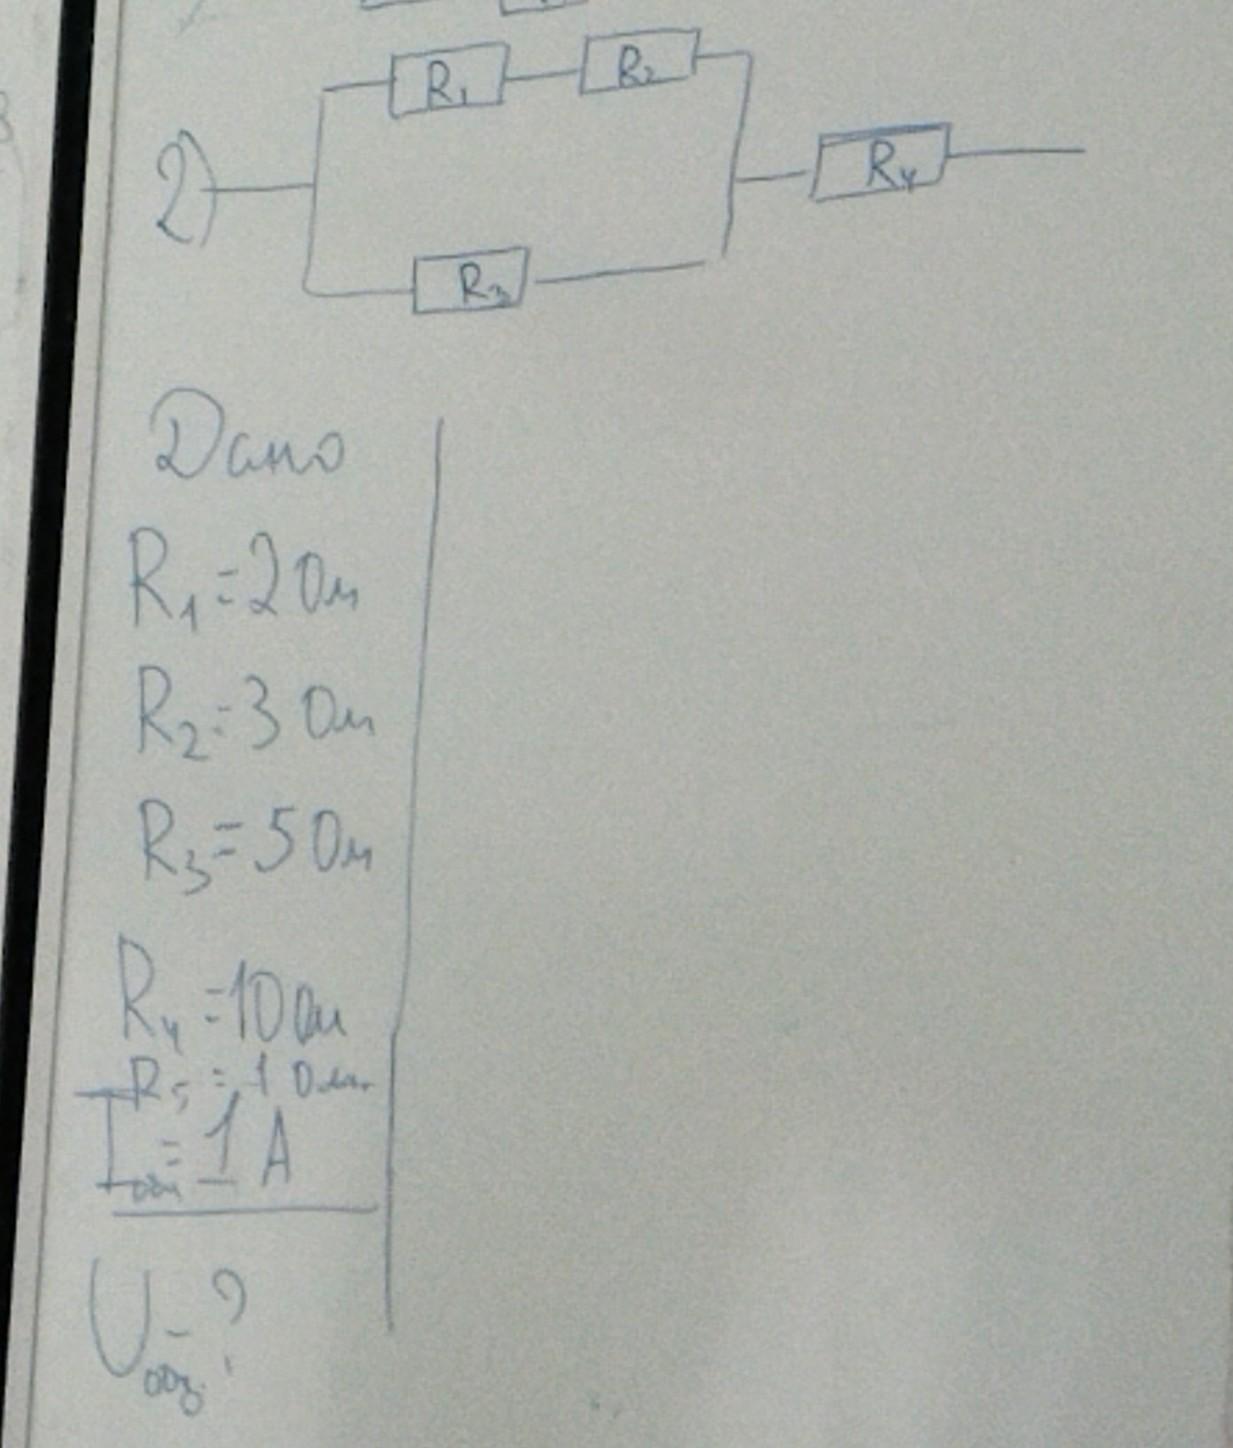 R₁ R₂
2) R₄
R₃
Дано
R₁=2 Ом
R₂=3 Ом
R₃=5 Ом
R₄=10 Ом
R₅=1 Ом.
I общ=1 А
U общ.-?